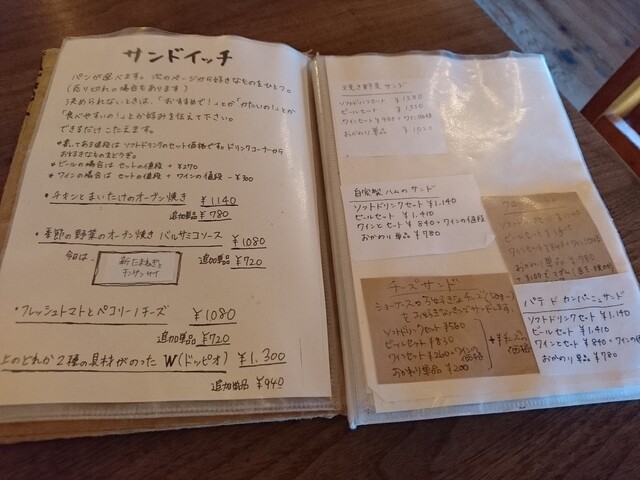 サンドイッチ
パンが選べます。次のページから好きなものをひとつ。
(売り切れの場合もあります)
決められないときは、「おすすめで!」とか「かたいの!」とか
「食べやすいの!」とか好みを伝えて下さい。
できるだけこたえます。
*書いてある値段はソフトドリンクのセット価格です。ドリンクコーナーから
お好きなものをどうぞ。
*ビールの場合は セットの値段 + ¥270
*ワインの場合は セットの値段 + ワインの値段 - ¥300
・チキンとまいたけのオーブン焼き ¥1140
追加単品 ¥780
・季節の野菜のオーブン焼き バルサミコソース ¥1080
今日は、 追加単品 ¥720
新たまねぎと
チンゲンサイ
・フレッシュトマトとペコリーノチーズ ¥1080
追加単品 ¥720
上のどれか2種の具材がのった W(ドッピオ) ¥1,300
追加単品 ¥940
焼き野菜 サンド
ソフトドリンクセット
ビールセット
おかわり 単品 ¥1020
自家製ハムのサンド
ソフトドリンクセット ¥1,140
ビールセット ¥1,410
ワインとセット ¥840+ワインの値段
おかわり単品 ¥780
おかわり単品 ¥780
チーズサンド
ショーケースからお好きなチーズ
をお好きなパンでサンドします。
ソフトドリンクセット ¥560
ビールセット ¥830
ワインセット ¥260+ワインの価格
おかわり単品 ¥200
+チーズの価格
パテ ド カンパーニュサンド
ソフトドリンクセット ¥1,140
ビールセット ¥1,410
ワインとセット ¥840+ワインの値段
おかわり単品 ¥780